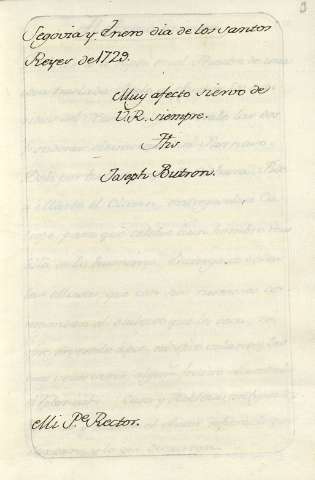 Segovia y Enero dia de los santos
Reyes de 1729.
Muy afecto siervo de
V.R. siempre.
Jhs
Joseph Butron.
Mi Pe Rector.